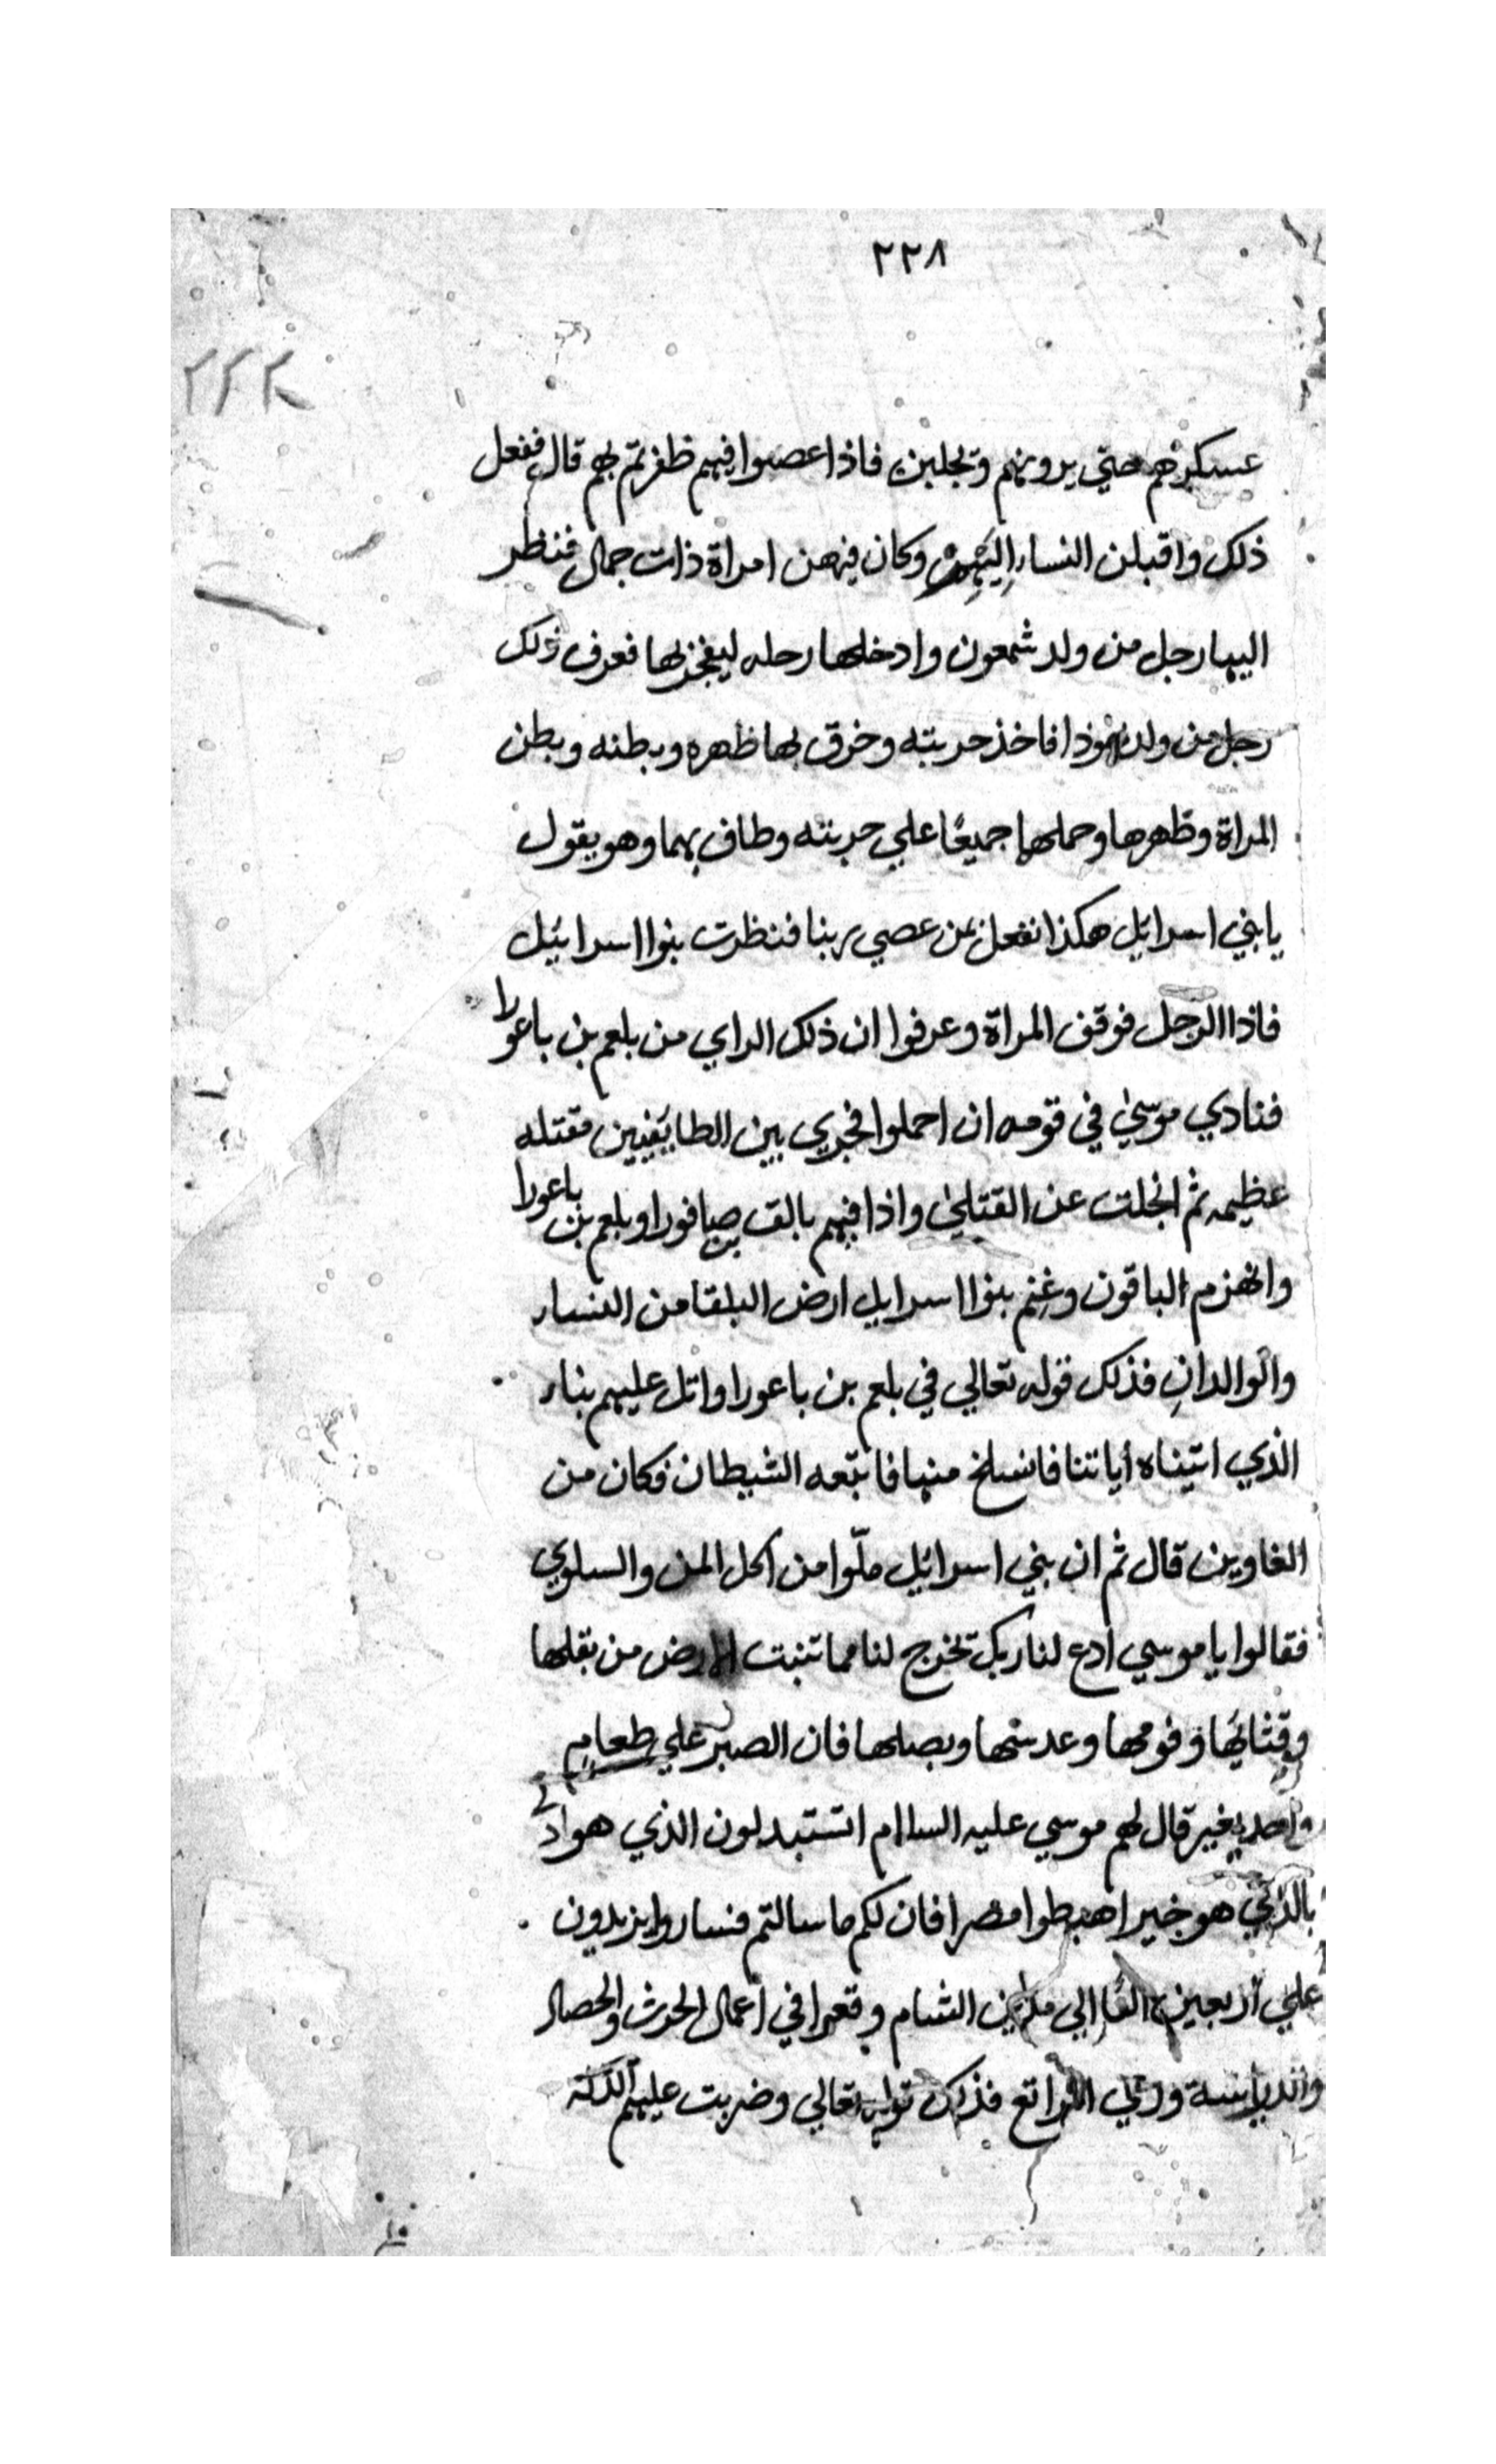 ٢٢٨
٢٢٢
عسكرهم حتي يرونهم وتجلبن فاذا عصوا فيهم ظفرتم بهم قال ففعل
ذلك واقبلن النساء اليهم وكان فيهن امراة ذات جمال فنظر
اليها رجل من ولد شمعون وادخلها رحله ليفجر بها فعرف ذلك
رجل من ولد يهوذا فاخذ حربته وخرق بها ظهره وبطنه وبطن
المراة وظهرها وحملها جميعًا علي حربته وطاف بهما وهو يقول
يا بني اسرائيل هكذا نفعل بمن عصي ربنا فنظرت بنوا اسرائيل
فاذا الرجل فوقف المراة وعرفوا ان ذلك الراي من بلعم بن باعورا
فنادي موسي في قومه ان احملوا فجري بين الطايفيين مقتله
عظيمه ثم انجلت عن القتلي واذا فيهم بالق بن صافورا وبلعم بن باعورا
وانهزم الباقون وغنم بنوا اسرايل ارض البلقا من النساء
والوالدانِ فذلك قوله تعالي في بلعم بن باعورا واتل عليهم بناء
الذي اتيناه اياتنا فانسلخ منها فاتبعه الشيطان فكان من
الغاوين قال ثم ان بني اسرائيل ملّوا من اكل المن والسلوي
فقالوا يا موسي ادع لنا ربك تخرج لنا مما تنبت الارض من بقلها
وقثائها وفومها وعدسها وبصلها فان الصبر علي طعامٍ
واحد يغير قال لهم موسي عليه السلام اتستبدلون الذي هو ادني
بالذي هو خير اهبطوا مصرا فان لكم ما سالتم فساروا يزيدون
علي اربعين الفًا الي الشام وقعوا في اعمال الحرث والحصاد
والدياسة فذلك قوله تعالي وضربت عليهم الذلة